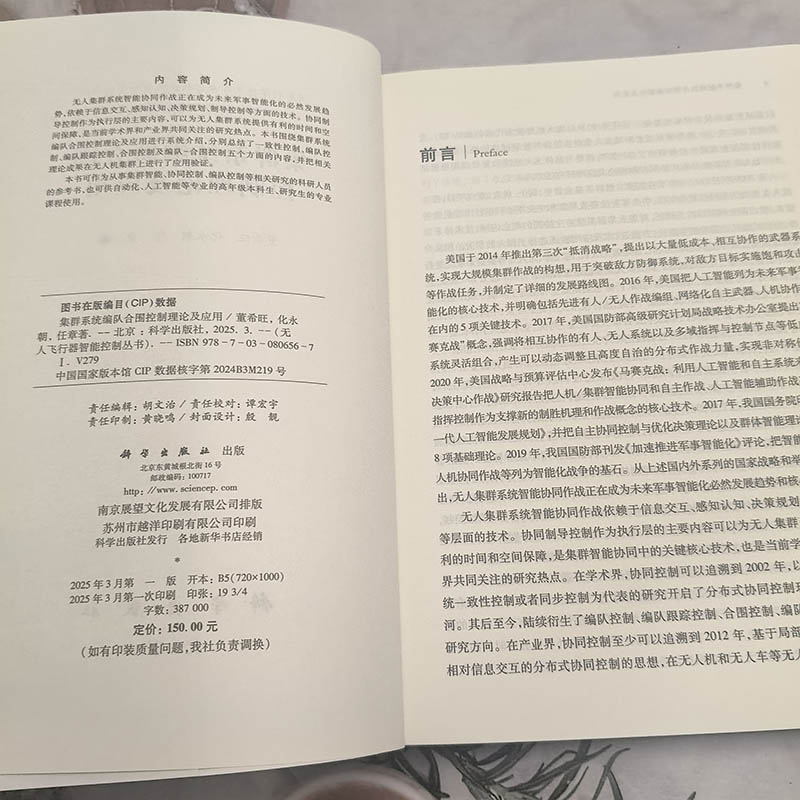 内容简介
无人集群系统智能协同作战正在成为未来军事智能化的必然发展趋
势,依赖于信息交互、感知认知、决策规划、制导控制等方面的技术。协同制
导控制作为执行层的主要内容,可以为无人集群系统提供有利的时间和空
间保障,是当前学术界和产业界共同关注的研究热点。本书围绕集群系统
编队合围控制理论及应用进行系统介绍,分别总结了一致性控制、编队控
制、编队跟踪控制、合围控制及编队-合围控制五个方面的内容,并把相关
理论成果在无人机集群上进行了应用验证。
本书可作为从事集群智能、协同控制、编队控制等相关研究的科研人员
的参考书,也可供自动化、人工智能等专业的高年级本科生、研究生的专业
课程使用。
图书在版编目(CIP)数据
集群系统编队合围控制理论及应用 / 董希旺,化永
朝,任章著. -- 北京 : 科学出版社, 2025. 3. -- (无
人飞行器智能控制丛书). -- ISBN 978-7-03-080656-7
Ⅰ. V279
中国国家版本馆 CIP 数据核字第 2024B3M219 号
责任编辑:胡文治 / 责任校对:谭宏宇
责任印制:黄晓鸣 / 封面设计:殷 靓
科学出版社 出版
北京东黄城根北街 16 号
邮政编码:100717
http://www.sciencep.com
南京展望文化发展有限公司排版
苏州市越洋印刷有限公司印刷
科学出版社发行 各地新华书店经销
*
2025 年 3 月第 一 版 开本:B5(720×1000)
2025 年 3 月第一次印刷 印张:19 3/4
字数:387 000
定价:150.00 元
(如有印装质量问题,我社负责调换)
前言 | Preface
美国于 2014 年推出第三次“抵消战略”,提出以大量低成本、相互协作的武器系
统,实现大规模集群作战的构想,用于突破敌方防御系统,对敌方目标实施饱和攻击
等作战任务,并制定了详细的发展路线图。2016 年,美国把人工智能列为未来军事智
能化的核心技术,并明确包括先进有人/无人作战编组、网络化自主武器、人机协作
在内的 5 项关键技术。2017 年,美国国防部高级研究计划局战略技术办公室提出“
赛克战”概念,强调将相互协作的有人、无人系统以及多域指挥与控制节点等低
系统灵活组合,产生可以动态调整且高度自治的分布式作战力量,实现非对称
2020 年,美国战略与预算评估中心发布《马赛克战:利用人工智能和自主系统
决策中心作战》研究报告把人机/集群智能协同和自主作战、人工智能辅助作战
指挥控制作为支撑新的制胜机理和作战概念的核心技术。2017 年,我国国务院
一代人工智能发展规划》,并把自主协同控制与优化决策理论以及群体智能理
8 项基础理论。2019 年,我国国防部刊发《加速推进军事智能化》评论,把智能
人机协同作战等列为智能化战争的基石。从上述国内外系列的国家战略和
出,无人集群系统智能协同作战正在成为未来军事智能化必然发展趋势和核
无人集群系统智能协同作战依赖于信息交互、感知认知、决策规划
等层面的技术。协同制导控制作为执行层的主要内容可以为无人集群
利的时间和空间保障,是集群智能协同中的关键核心技术,也是当前学
界共同关注的研究热点。在学术界,协同控制可以追溯到 2002 年,以
统一致性控制或者同步控制为代表的研究开启了分布式协同控制
河。其后至今,陆续衍生了编队控制、编队跟踪控制、合围控制、编
研究方向。在产业界,协同控制至少可以追溯到 2012 年,基于局部
相对信息交互的分布式协同控制的思想,在无人机和无人车等无